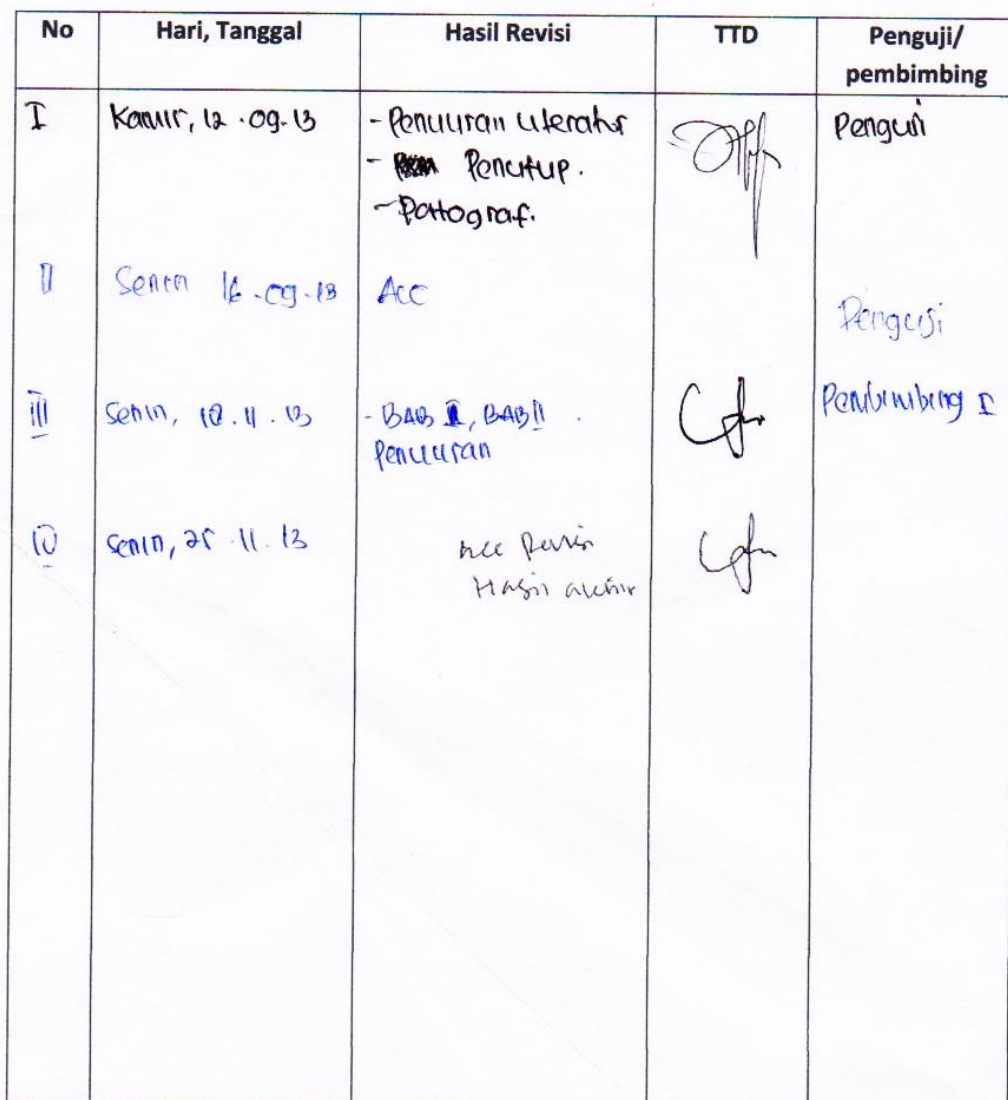 No Hari, Tanggal Hasil Revisi TTD Penguji/
pembimbing
I Kamis, 12.09.13 - Penulisan literatur Penguji
- Penutup.
- Partograf.
II Senin 16.09.13 Acc
Penguji
III Senin, .11.13 - BAB I, BAB II Pembimbing I
Penulisan
IV Senin, 25.11.13 Acc Revisi
Hasil akhir